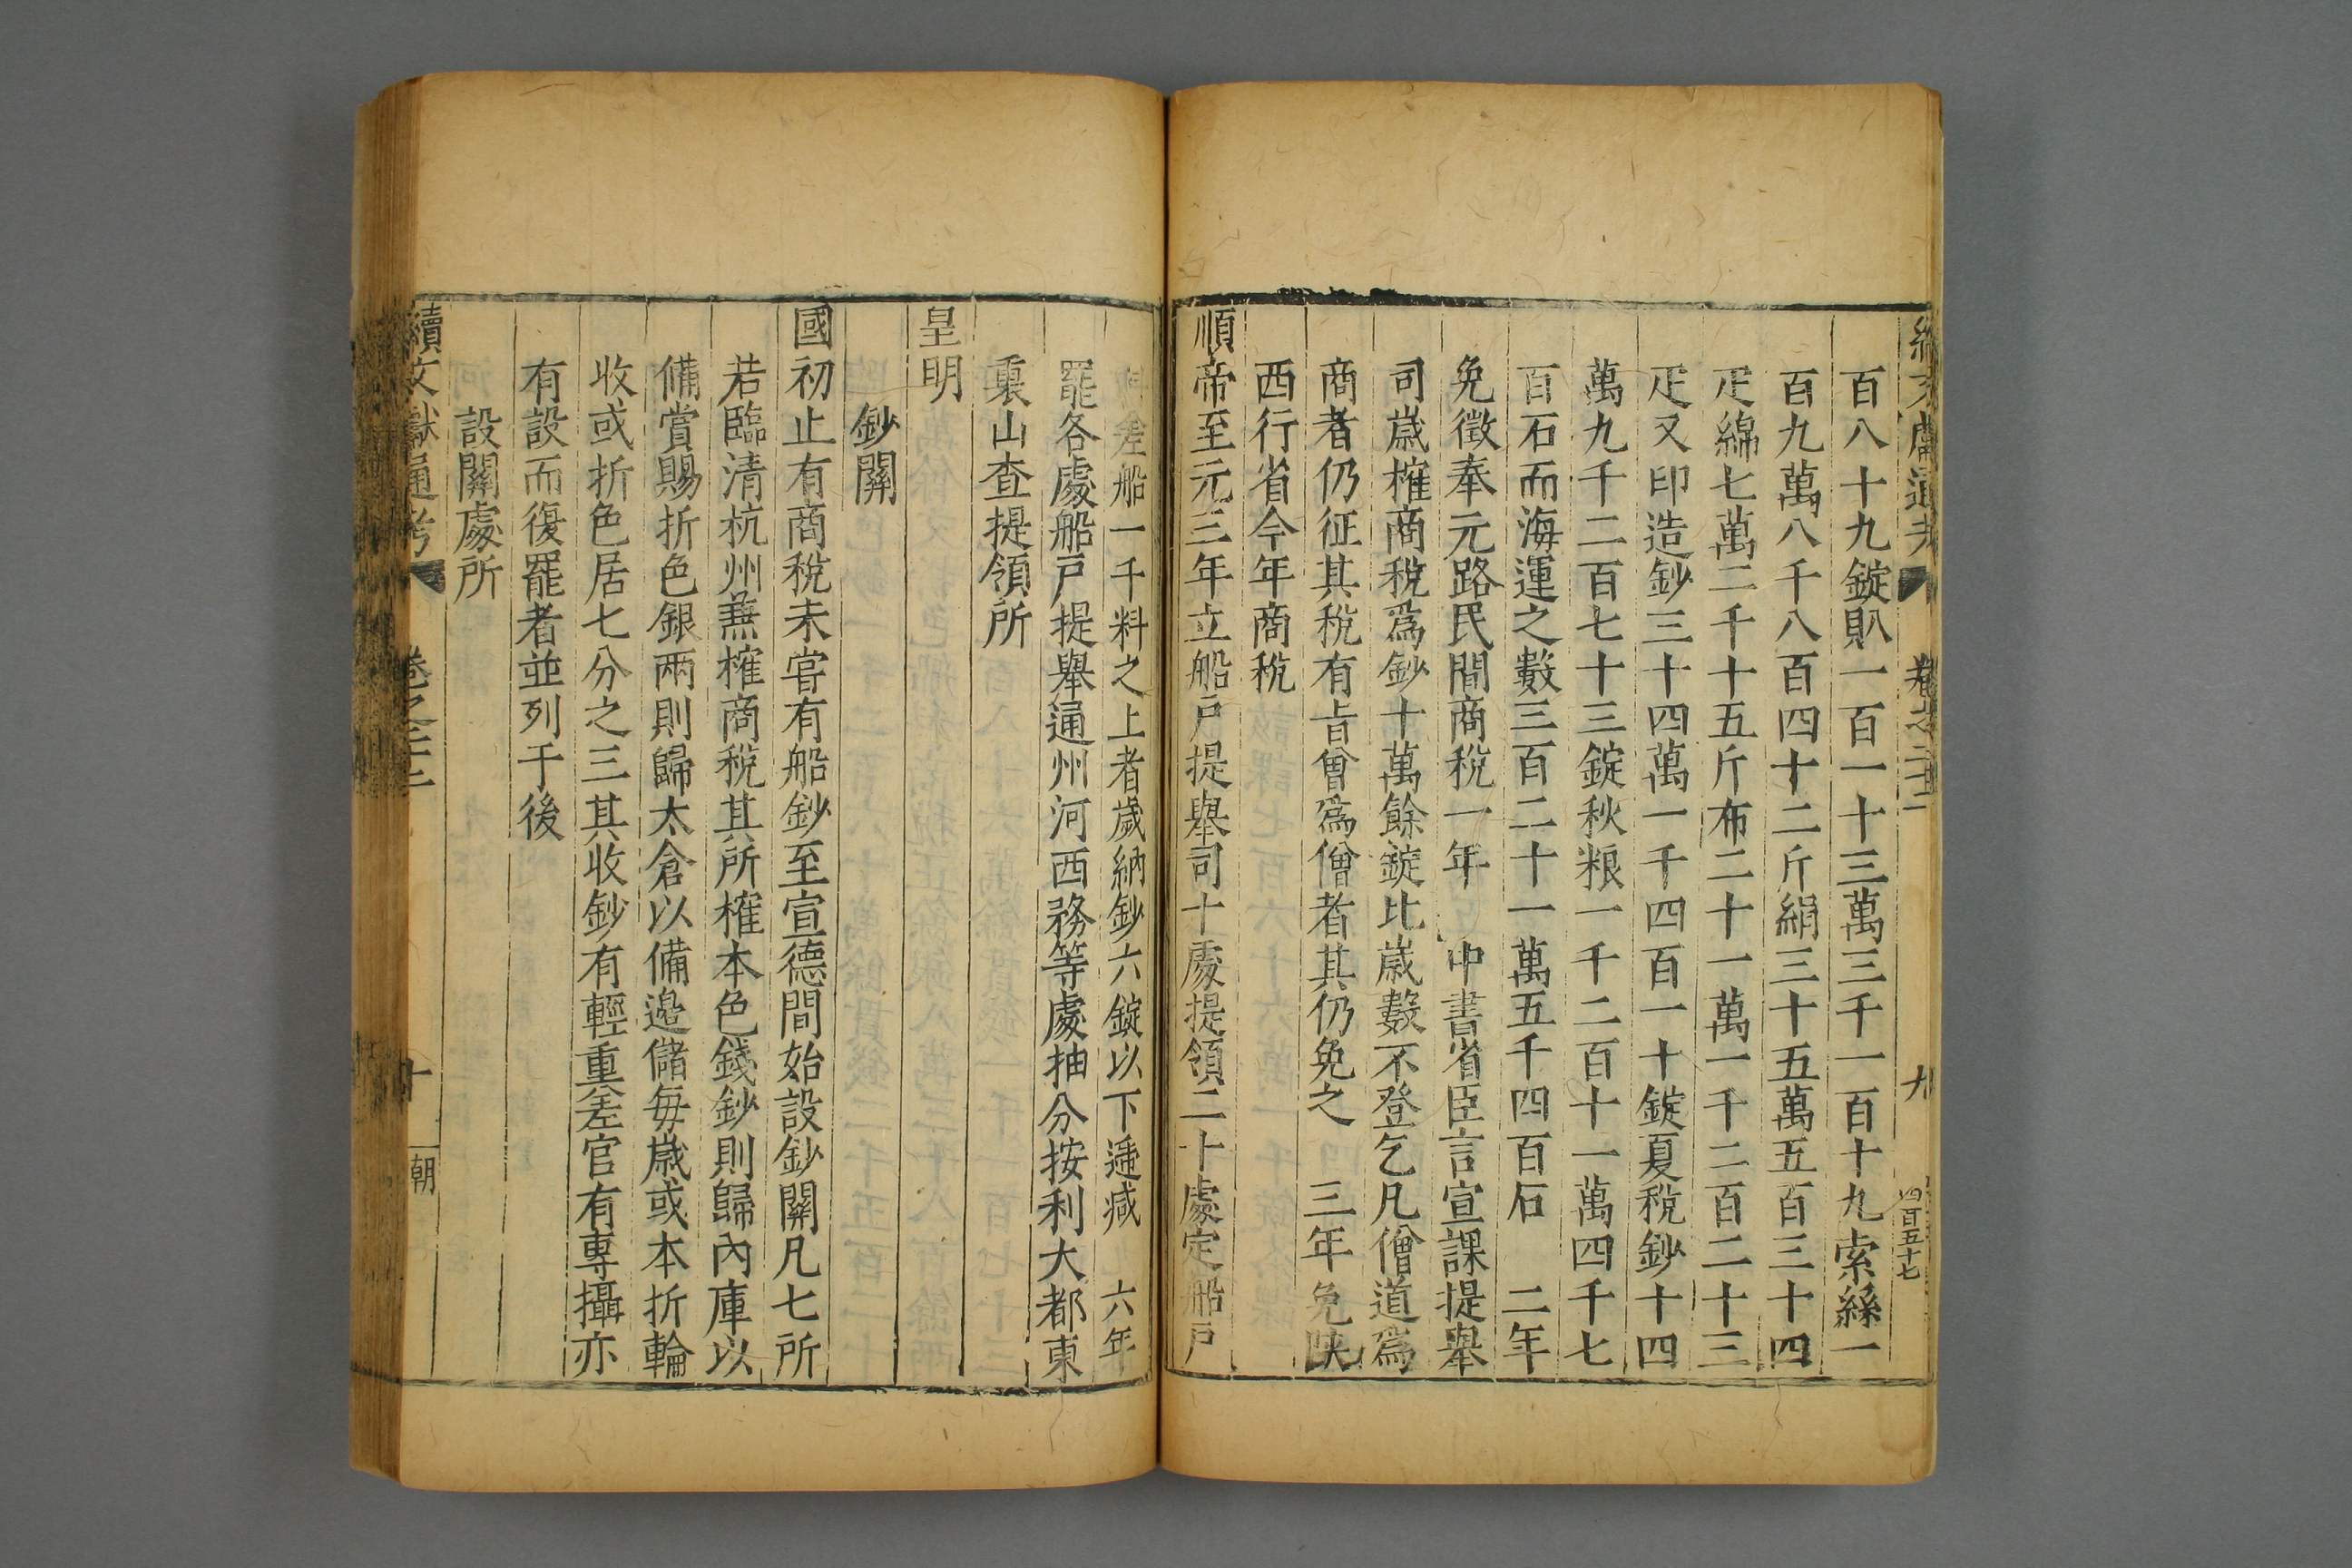 百八十九錠䝿一百一十三萬三千一百十九索絲一
百九萬八千八百四十二斤絹三十五萬五百三十四
疋綿七萬二千十五斤布二十一萬一千二百二十三
疋又印造鈔三十四萬一千四百一十錠夏稅鈔十四
萬九千二百七十三錠秋粮一千二百十一萬四千七
百石而海運之數三百二十一萬五千四百石 二年
免徵奉元路民間商稅一年 中書省臣言宣課提舉
司歲榷商稅爲鈔十萬餘錠比歲數不登乞凡僧道爲
商者仍征其稅有旨曾爲僧者其仍免之 三年免陝
西行省今年商稅
順帝至元三年立船戶提舉司十處提領二十處定船戶
差船一千料之上者歲納鈔六錠以下遞减 六年
罷各處船戶提舉通州河西務等處抽分按利大都東
裏山查提領所
皇明
鈔關
國初止有商稅未甞有船鈔至宣德間始設鈔關凡七所
若臨清杭州兼榷商稅其所榷本色錢鈔則歸內庫以
備賞賜折色銀兩則歸太倉以備邉儲每歲或本折輪
收或折色居七分之三其收鈔有輕重差官有專攝亦
有設而復罷者並列于後
設關處所
續文獻通考 卷之二十二 十 朝